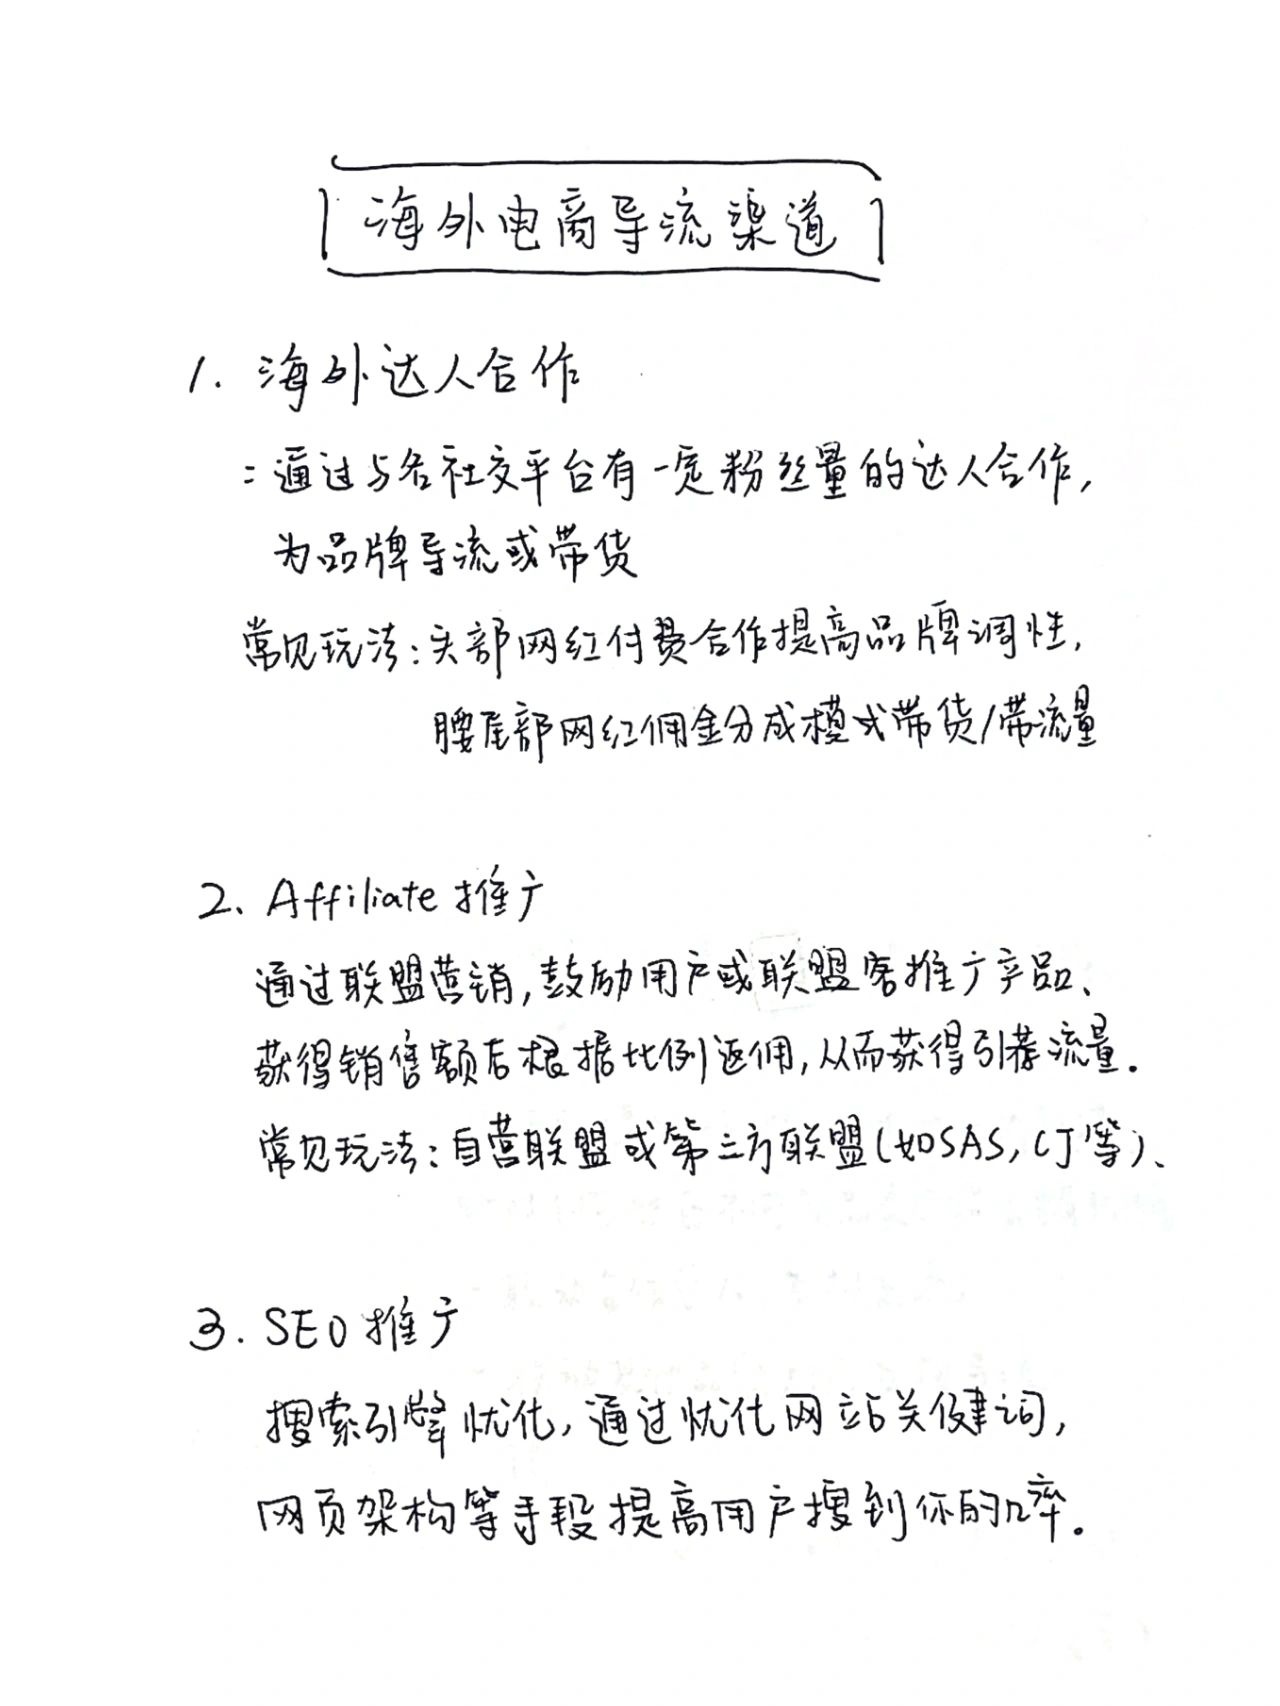 海外电商导流渠道
1. 海外达人合作
: 通过与各社交平台有一定粉丝量的达人合作,
为品牌导流或带货
常见玩法: 头部网红付费合作提高品牌调性,
腰尾部网红佣金分成模式带货/带流量
2、Affiliate 推广
通过联盟营销, 鼓励用户或联盟客推广产品、
获得销售额后根据比例返佣, 从而获得引荐流量.
常见玩法: 自营联盟或第三方联盟(如SAS, CJ等)、
3. SEO 推广
搜索引擎优化, 通过优化网站关健词,
网页架构等手段提高用户搜到你的几率.